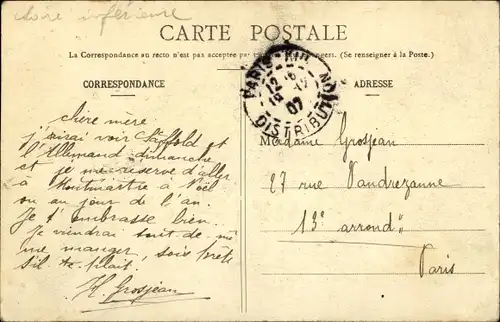 Loire inférieure
CARTE POSTALE
La Correspondance au recto n'est pas acceptée par (Se renseigner à la Poste.)
CORRESPONDANCE
ADRESSE
PARIS
12
07
DISTRIBUTION
chère mère
j'irai voir et
l'Allemand dimanche
et je me réserve d'aller
à Montmartre à Noël
ou au jour de l'an.
Je t'embrasse bien.
Je viendrai tout de mê
me manger, sois prête
s'il te plait.
H. Grosjean
Madame Grosjean
27 rue Vandrezanne
13e arrondt
Paris